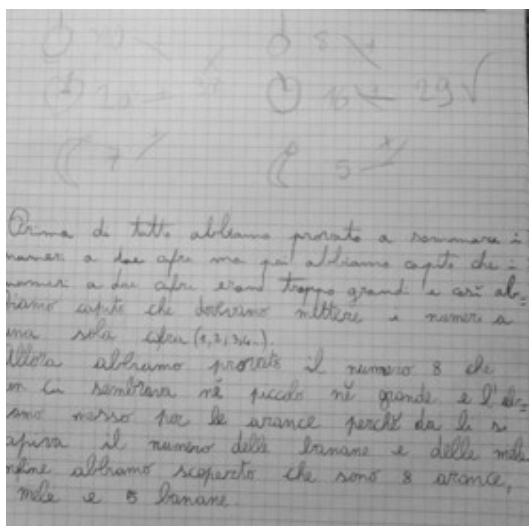 8
20 16 29 √
7 5
Prima di tutto abbiamo provato a sommare i
numeri a due cifre ma poi abbiamo capito che i
numeri a due cifre erano troppo grandi e così ab=
biamo capito che dovevamo mettere i numeri a
una sola cifra (1,2,3,4..).
Allora abbiamo provato il numero 8 che
non ci sembrava nè piccolo nè grande e l'ab=
biamo messo per le arance perchè da lì si
capiva il numero delle banane e delle mele
infine abbiamo scoperto che sono 8 arance,
mele e 5 banane.